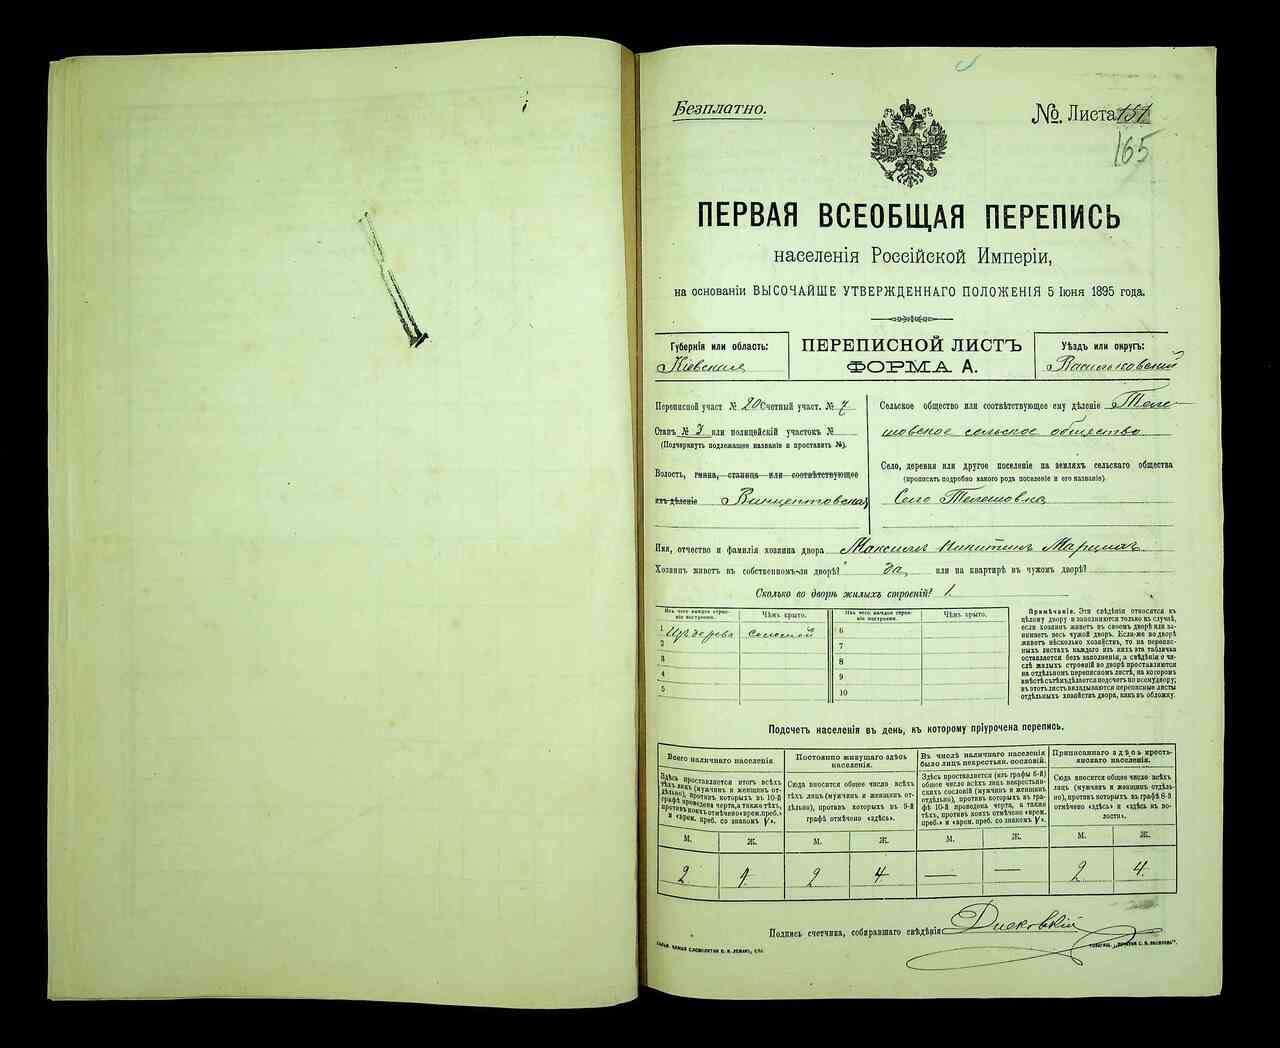 Безплатно.
№. Листа 151
165
ПЕРВАЯ ВСЕОБЩАЯ ПЕРЕПИСЬ
населенія Россійской Имперіи,
на основаніи ВЫСОЧАЙШЕ УТВЕРЖДЕННАГО ПОЛОЖЕНІЯ 5 Іюня 1895 года.
Губернія или область:
Кіевская
ПЕРЕПИСНОЙ ЛИСТЪ
ФОРМА А.
Уѣздъ или округъ:
Васильковскій
Переписной участ № 20 Счетный участ. № 7
Станъ № 3 или полицейскій участокъ №
(Подчеркнуть подлежащее названіе и проставить №).
Волость, гмина, станица или соотвѣтствующее
ихъ дѣленіе Винцентовская
Сельское общество или соотвѣтствующее ему дѣленіе Теле-
шовское сельское общество
Село, деревня или другое поселеніе на земляхъ сельскаго общества
(прописать подробно какого рода поселеніе и его названіе).
Село Телешовка
Имя, отчество и фамилія хозяина двора Максимъ Никитинъ
Хозяинъ живетъ въ собственномъ-ли дворѣ? да или на квартирѣ въ чужомъ дворѣ?
Сколько во дворѣ жилыхъ строеній? 1.
Изъ чего каждое строе-
ніе построено.
Чѣмъ крыто.
Изъ чего каждое строе-
ніе построено.
Чѣмъ крыто.
1 Изъ дерева соломой
2
3
4
5
6
7
8
9
10
Примѣчаніе. Эти свѣдѣнія относятся къ
цѣлому двору и заполняются только въ случаѣ,
если хозяинъ живетъ въ своемъ дворѣ или за-
нимаетъ весь чужой дворъ. Если-же во дворѣ
живетъ нѣсколько хозяйствъ, то на перепис-
ныхъ листахъ каждаго изъ нихъ эта табличка
оставляется безъ заполненія, а свѣдѣнія о чи-
слѣ жилыхъ строеній во дворѣ проставляются
на отдѣльномъ переписномъ листѣ, на которомъ
вмѣстѣ съ тѣмъ дѣлается подсчетъ по всему двору;
въ этотъ листъ вкладываются переписные листы
отдѣльныхъ хозяйствъ двора, какъ въ обложку.
Подсчетъ населенія въ день, къ которому пріурочена перепись.
Всего наличнаго населенія
Здѣсь проставляется итогъ всѣхъ
тѣхъ лицъ (мужчинъ и женщинъ от-
дѣльно), противъ которыхъ въ 10-й
графѣ проведена черта, а также тѣхъ,
противъ коихъ отмѣчено «врем. преб.»
и «врем. преб. со знакомъ V».
Постоянно живущаго здѣсь
населенія.
Сюда вносится общее число всѣхъ
тѣхъ лицъ (мужчинъ и женщинъ от-
дѣльно), противъ которыхъ въ 9-й
графѣ отмѣчено «здѣсь».
Въ числѣ наличнаго населенія
было лицъ некрестьян. сословій.
Здѣсь проставляется (изъ графы 5-й)
общее число всѣхъ лицъ некрестьян-
скихъ сословій (мужчинъ и женщинъ
отдѣльно), противъ которыхъ въ гра-
фѣ 10-й проведена черта, а также
тѣхъ, противъ коихъ отмѣчено «врем.
преб.» и «врем. преб. со знакомъ V».
Приписаннаго здѣсь кресть-
янскаго населенія.
Сюда вносится общее число всѣхъ
лицъ (мужчинъ и женщинъ отдѣль-
но), противъ которыхъ въ графѣ 8-й
отмѣчено «здѣсь» и «здѣсь въ во-
лости».
М. Ж. М. Ж. М. Ж. М. Ж.
2 1 2 4 — — 2 4
Подпись счетчика, собиравшаго свѣдѣнія